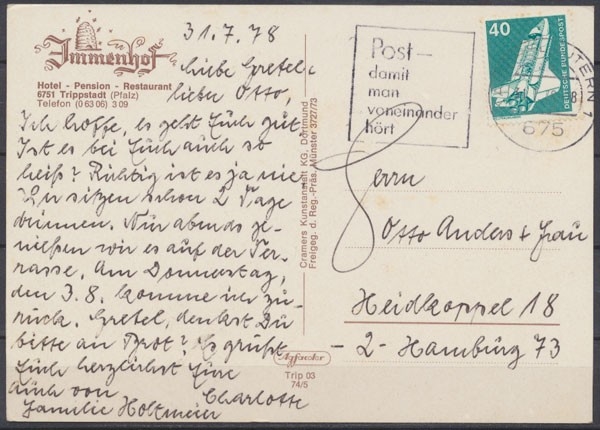 Immenhof
Hotel - Pension - Restaurant
6751 Trippstadt (Pfalz)
Telefon (0 63 06) 3 09
31.7.78
Liebe Gretel,
lieber Otto,
Ich hoffe, es geht Euch gut
Ist es bei Euch auch so
heiß? Richtig ist es ja nie
sitzen schon 2 Tage
drinnen. Nur abends ge-
nießen wir es auf der Ter-
rasse. Am Donnerstag,
den 3.8. komme ich zu-
rück. Gretel, denkst Du
bitte an Brot? Es grüßt
Euch herzlichst Eure
Charlotte
auch von
Familie Holtmeier
Cramers Kunstanstalt KG, Dortmund
Freigeg. d. Reg.-Präs. Münster 3727/73
Trip 03
74/5
Post -
damit
man
voneinander
hört
40
DEUTSCHE BUNDESPOST
TERN 1
675
Herrn
Otto Anders + Frau
Heidkoppel 18
- 2 - Hamburg 73